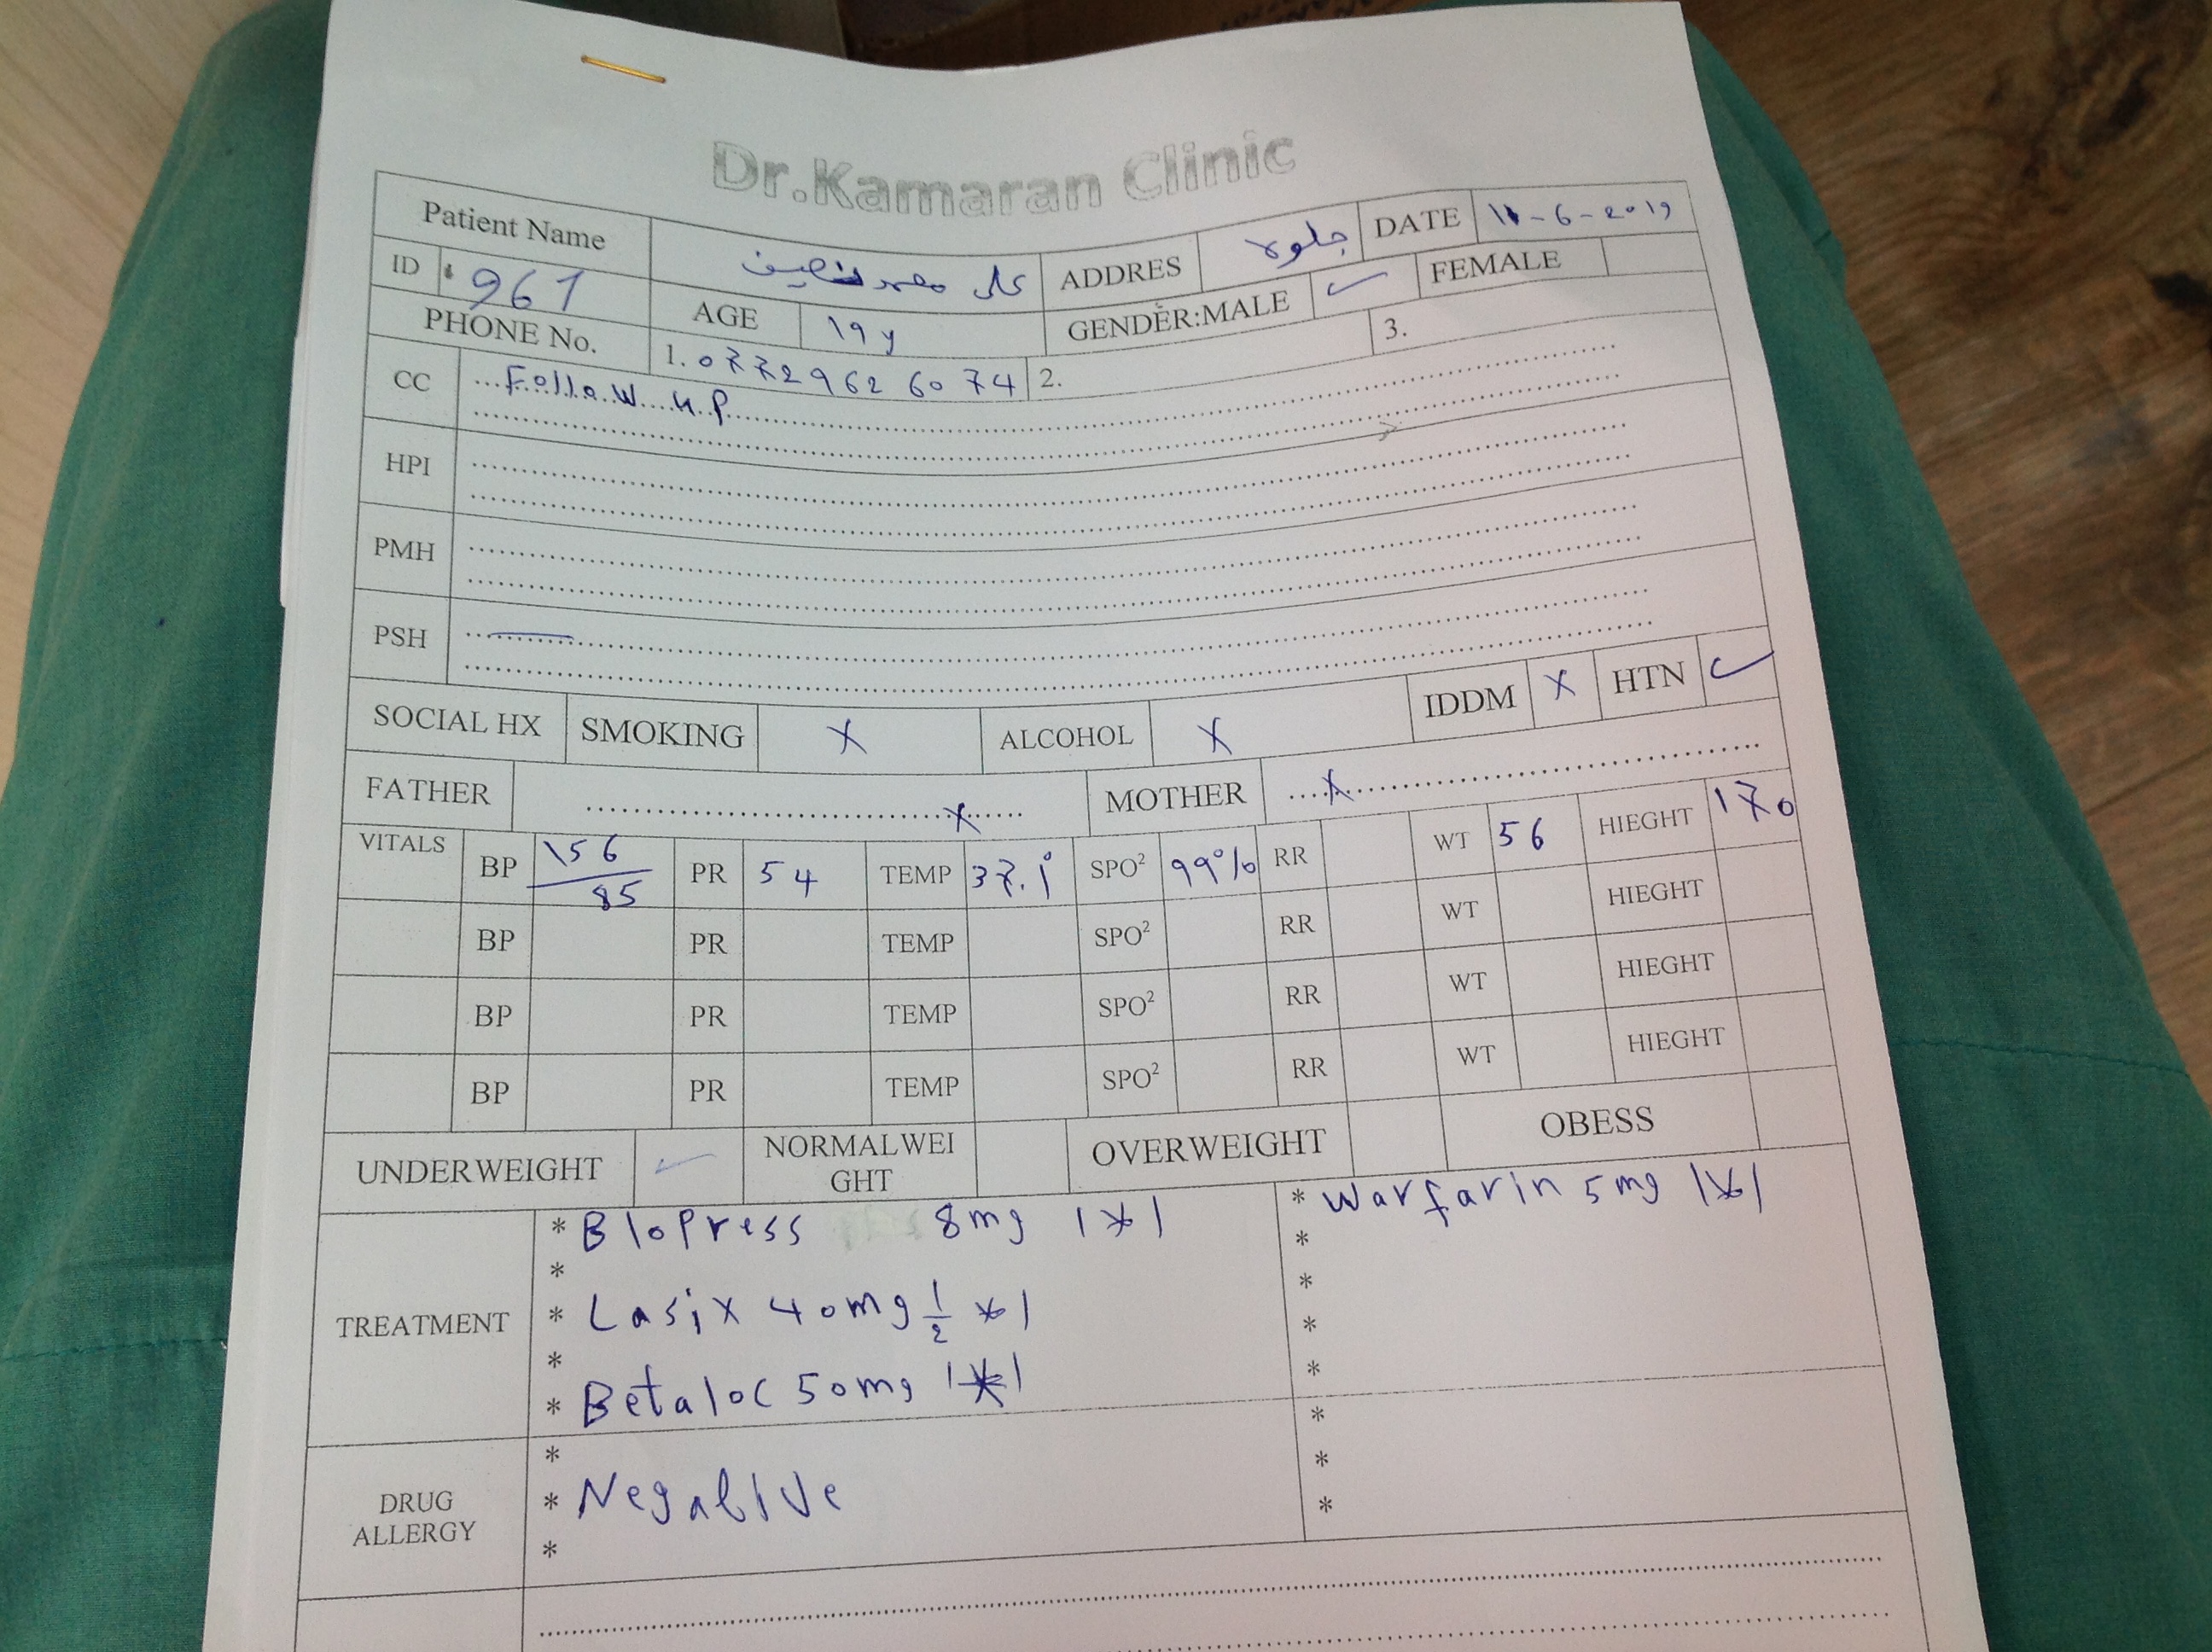 Dr.Kamaran Clinic
Patient Name علي محمد نصيف ADDRES جلولا DATE 11-6-2019
ID 961 AGE 19 y GENDER:MALE ✓ FEMALE
PHONE No. 1. 07729626074 2. 3.
CC Follow up
HPI
PMH
PSH
SOCIAL HX SMOKING X ALCOHOL X IDDM X HTN ✓
FATHER X MOTHER X
VITALS BP 156/85 PR 54 TEMP 37.1 SPO² 99% RR WT 56 HIEGHT 170
BP PR TEMP SPO² RR WT HIEGHT
BP PR TEMP SPO² RR WT HIEGHT
BP PR TEMP SPO² RR WT HIEGHT
UNDERWEIGHT ✓ NORMALWEIGHT OVERWEIGHT OBESS
TREATMENT
* Blopress 8mg 1*1
*
* Lasix 40mg 1/2 *1
*
* Betaloc 50mg 1*1
* Warfarin 5mg 1*1
*
*
*
*
DRUG ALLERGY
*
* Negative
*
*
*
*